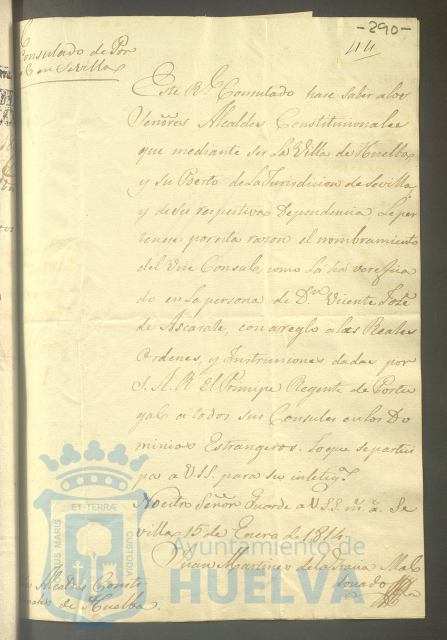 -290-
44
Consulado de Por
l en Sevilla
Este Rl. Consulado hase saber a los
Señores Alcaldes Constitucionales
que mediante ser la Villa de Huelba
y su Puerto de la Jurisdicion de Sevilla,
y de su respectiva Dependencia, le per
tenece por esta razon el nombramiento
del Vice Consul, como la ha verefica
do en la persona de Dn. Vicente Joze
de Ascarate, con areglo a las Reales
Ordenes, y Instruciones dadas por
S. A. R. El Principe Regente de Portu
gal a todos sus Consules en los Do
minios Estrangeros. Lo que se partici
pa a V.SS. para su intelig.a
Nuestro Señor Guarde a V.SS. m. a. Se
villa, 15 de Enero de 1814
Juan Martinez de la Mal
donado
Alcaldes Consti
nales de Huelba
ET TERRÆ
MARIS
CUSTODIA
Ayuntamiento de
HUELVA